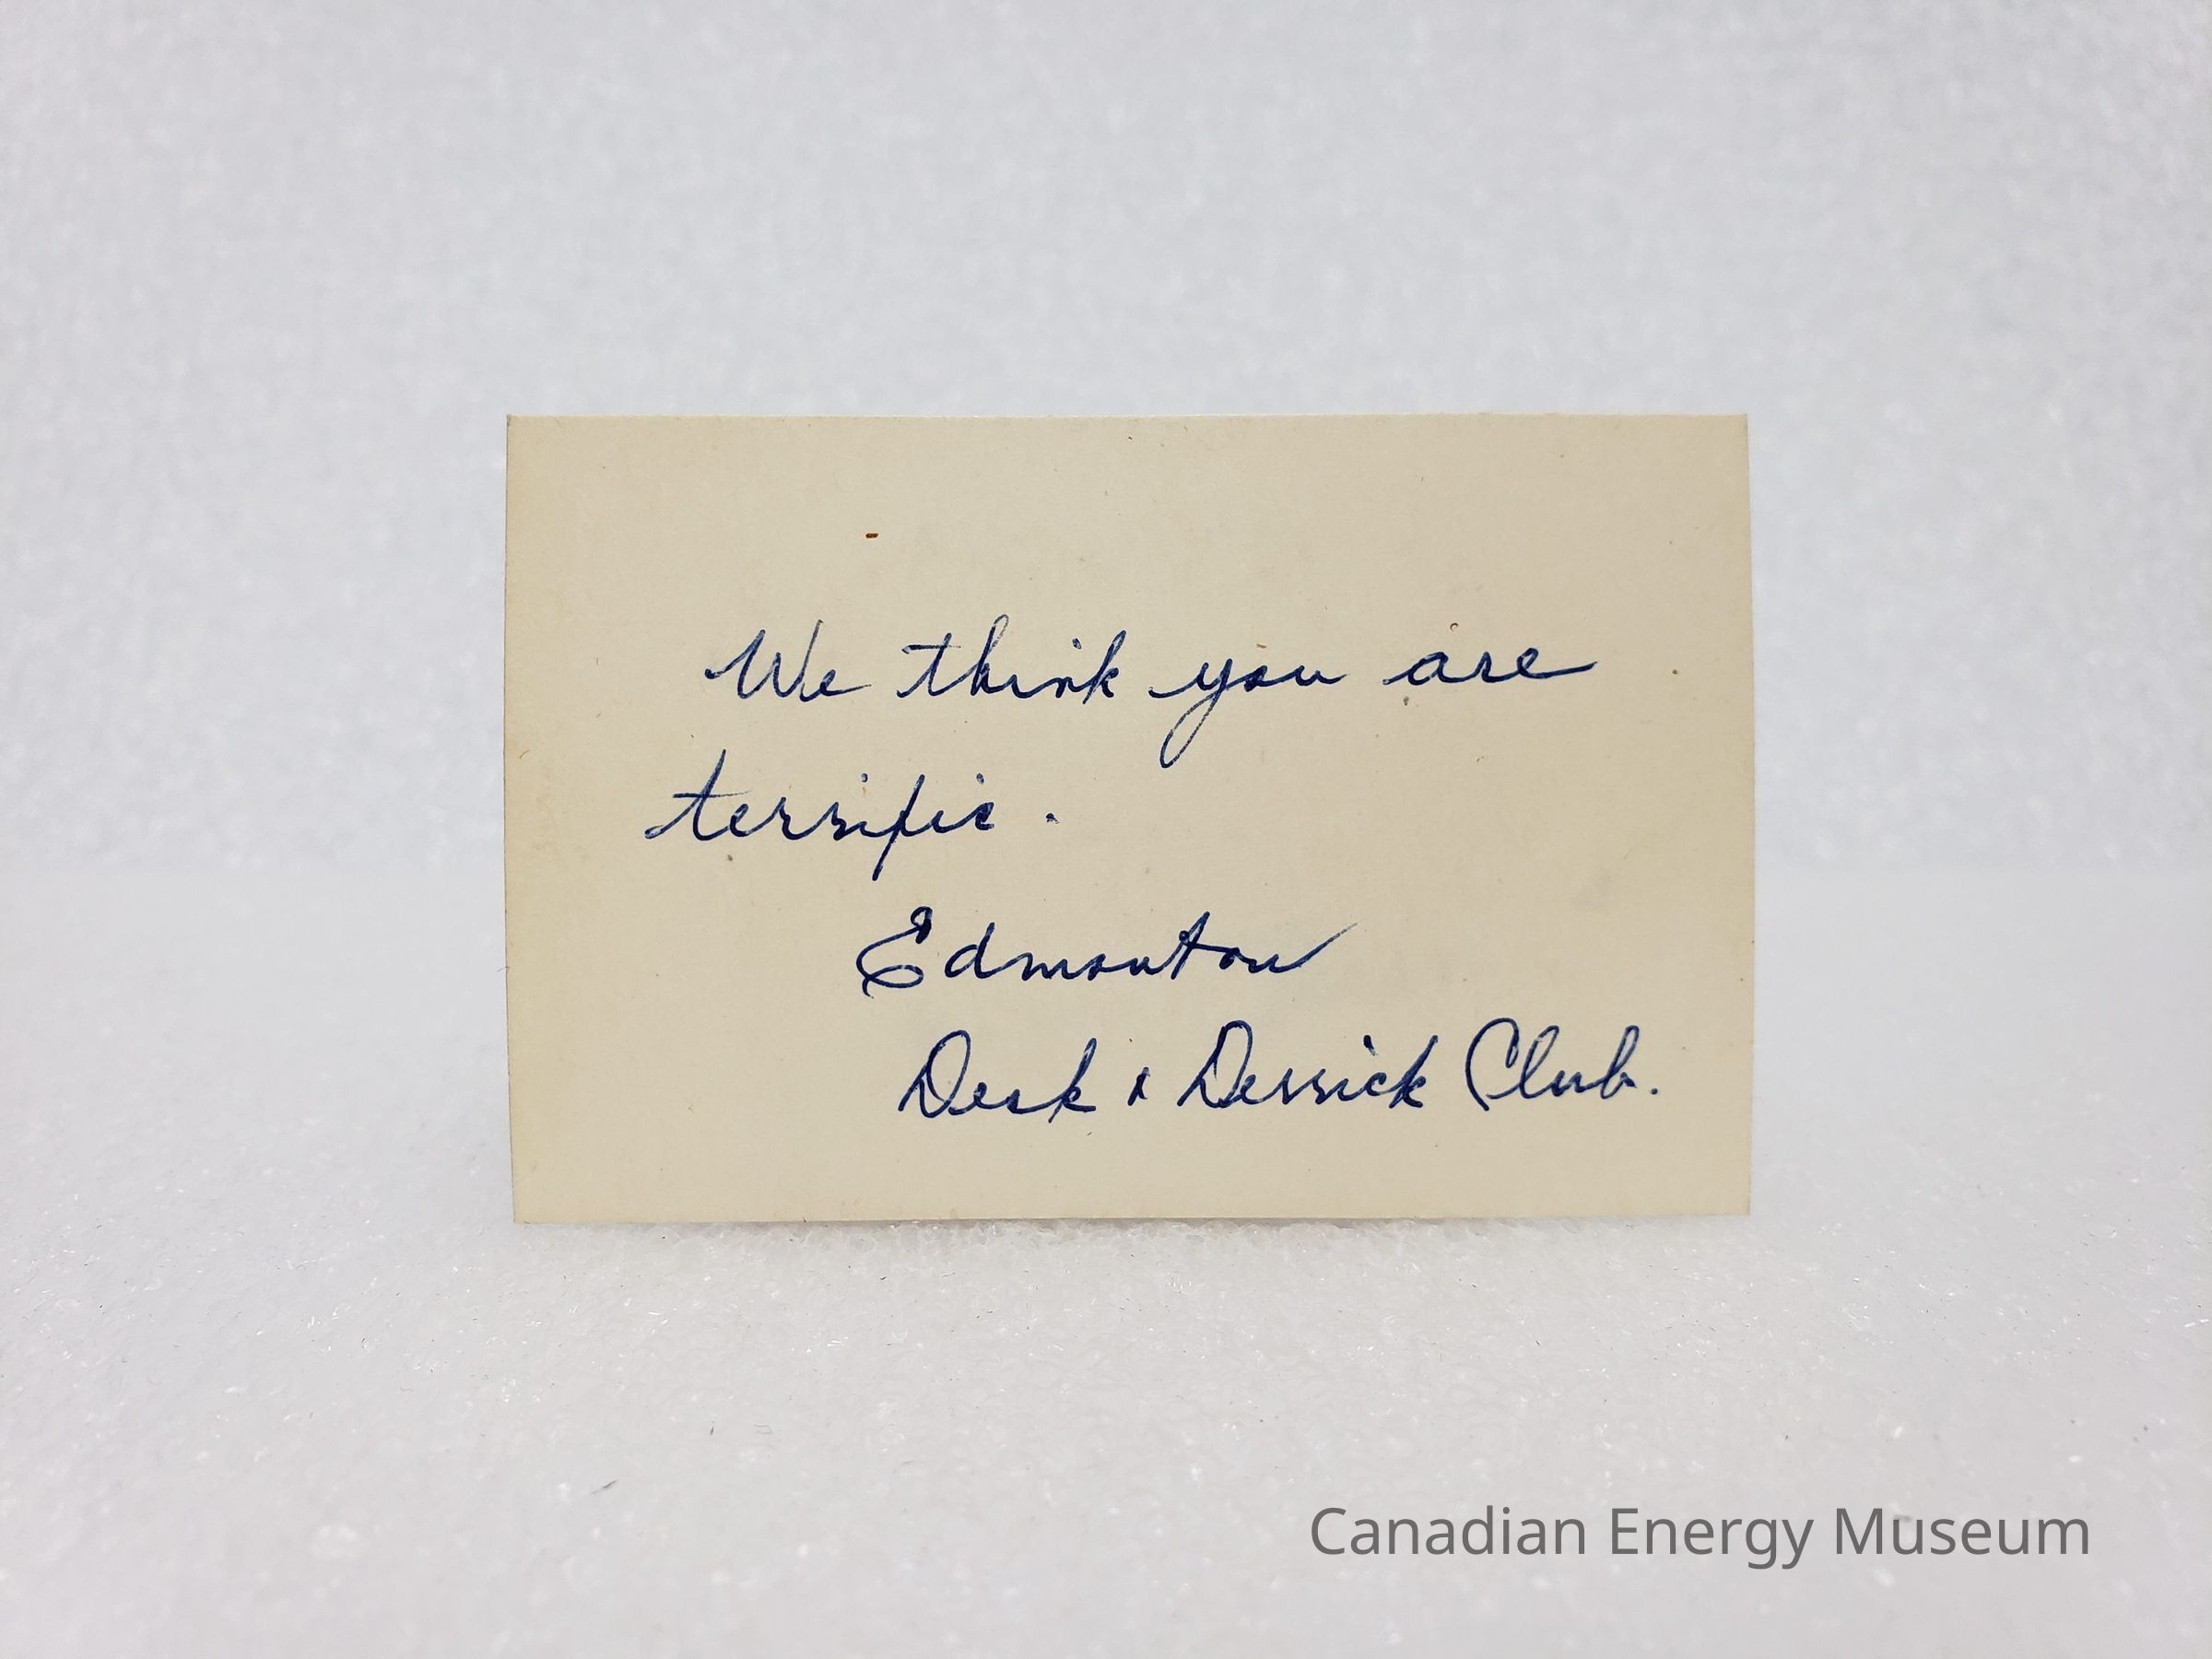 We think you are
terrific.
Edmonton
Desk & Derrick Club.
Canadian Energy Museum